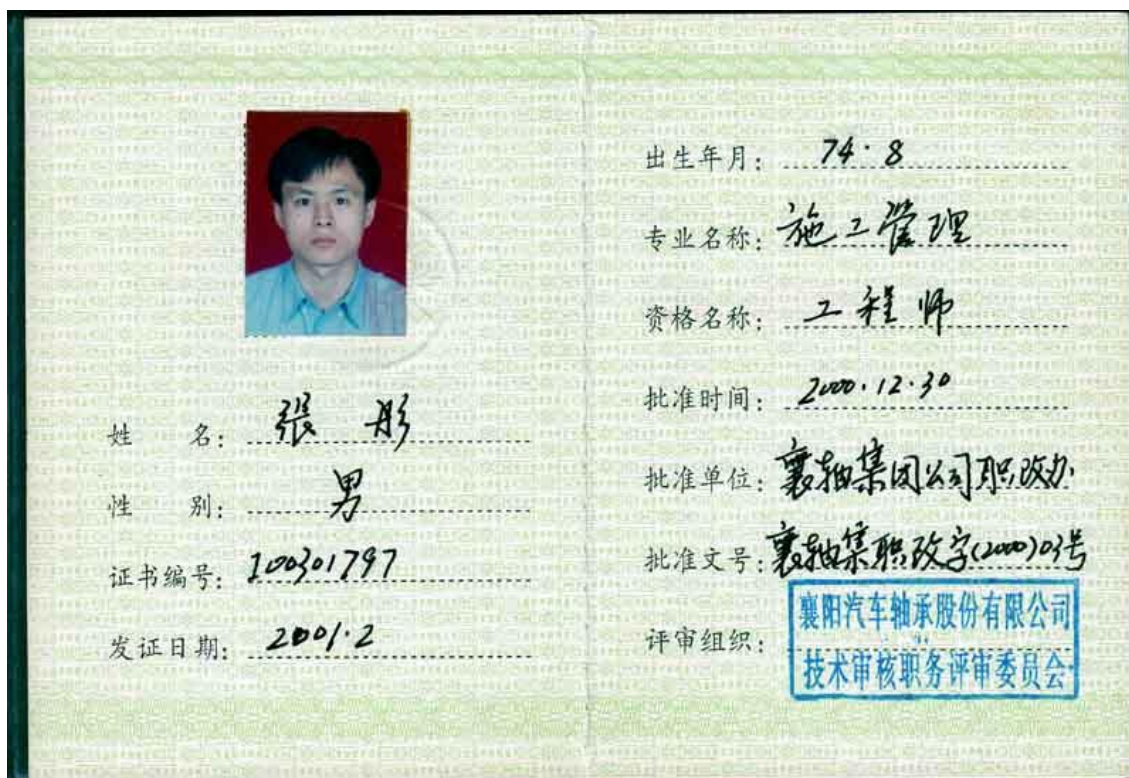 姓 名：張彤
性 别：男
证书编号：I00301797
发证日期：2001.2
出生年月：74.8
专业名称：施工管理
资格名称：工程师
批准时间：2000.12.30
批准单位：襄轴集团公司职改办
批准文号：襄轴集职改字(2000)03号
评审组织：
襄阳汽车轴承股份有限公司
技术审核职务评审委员会